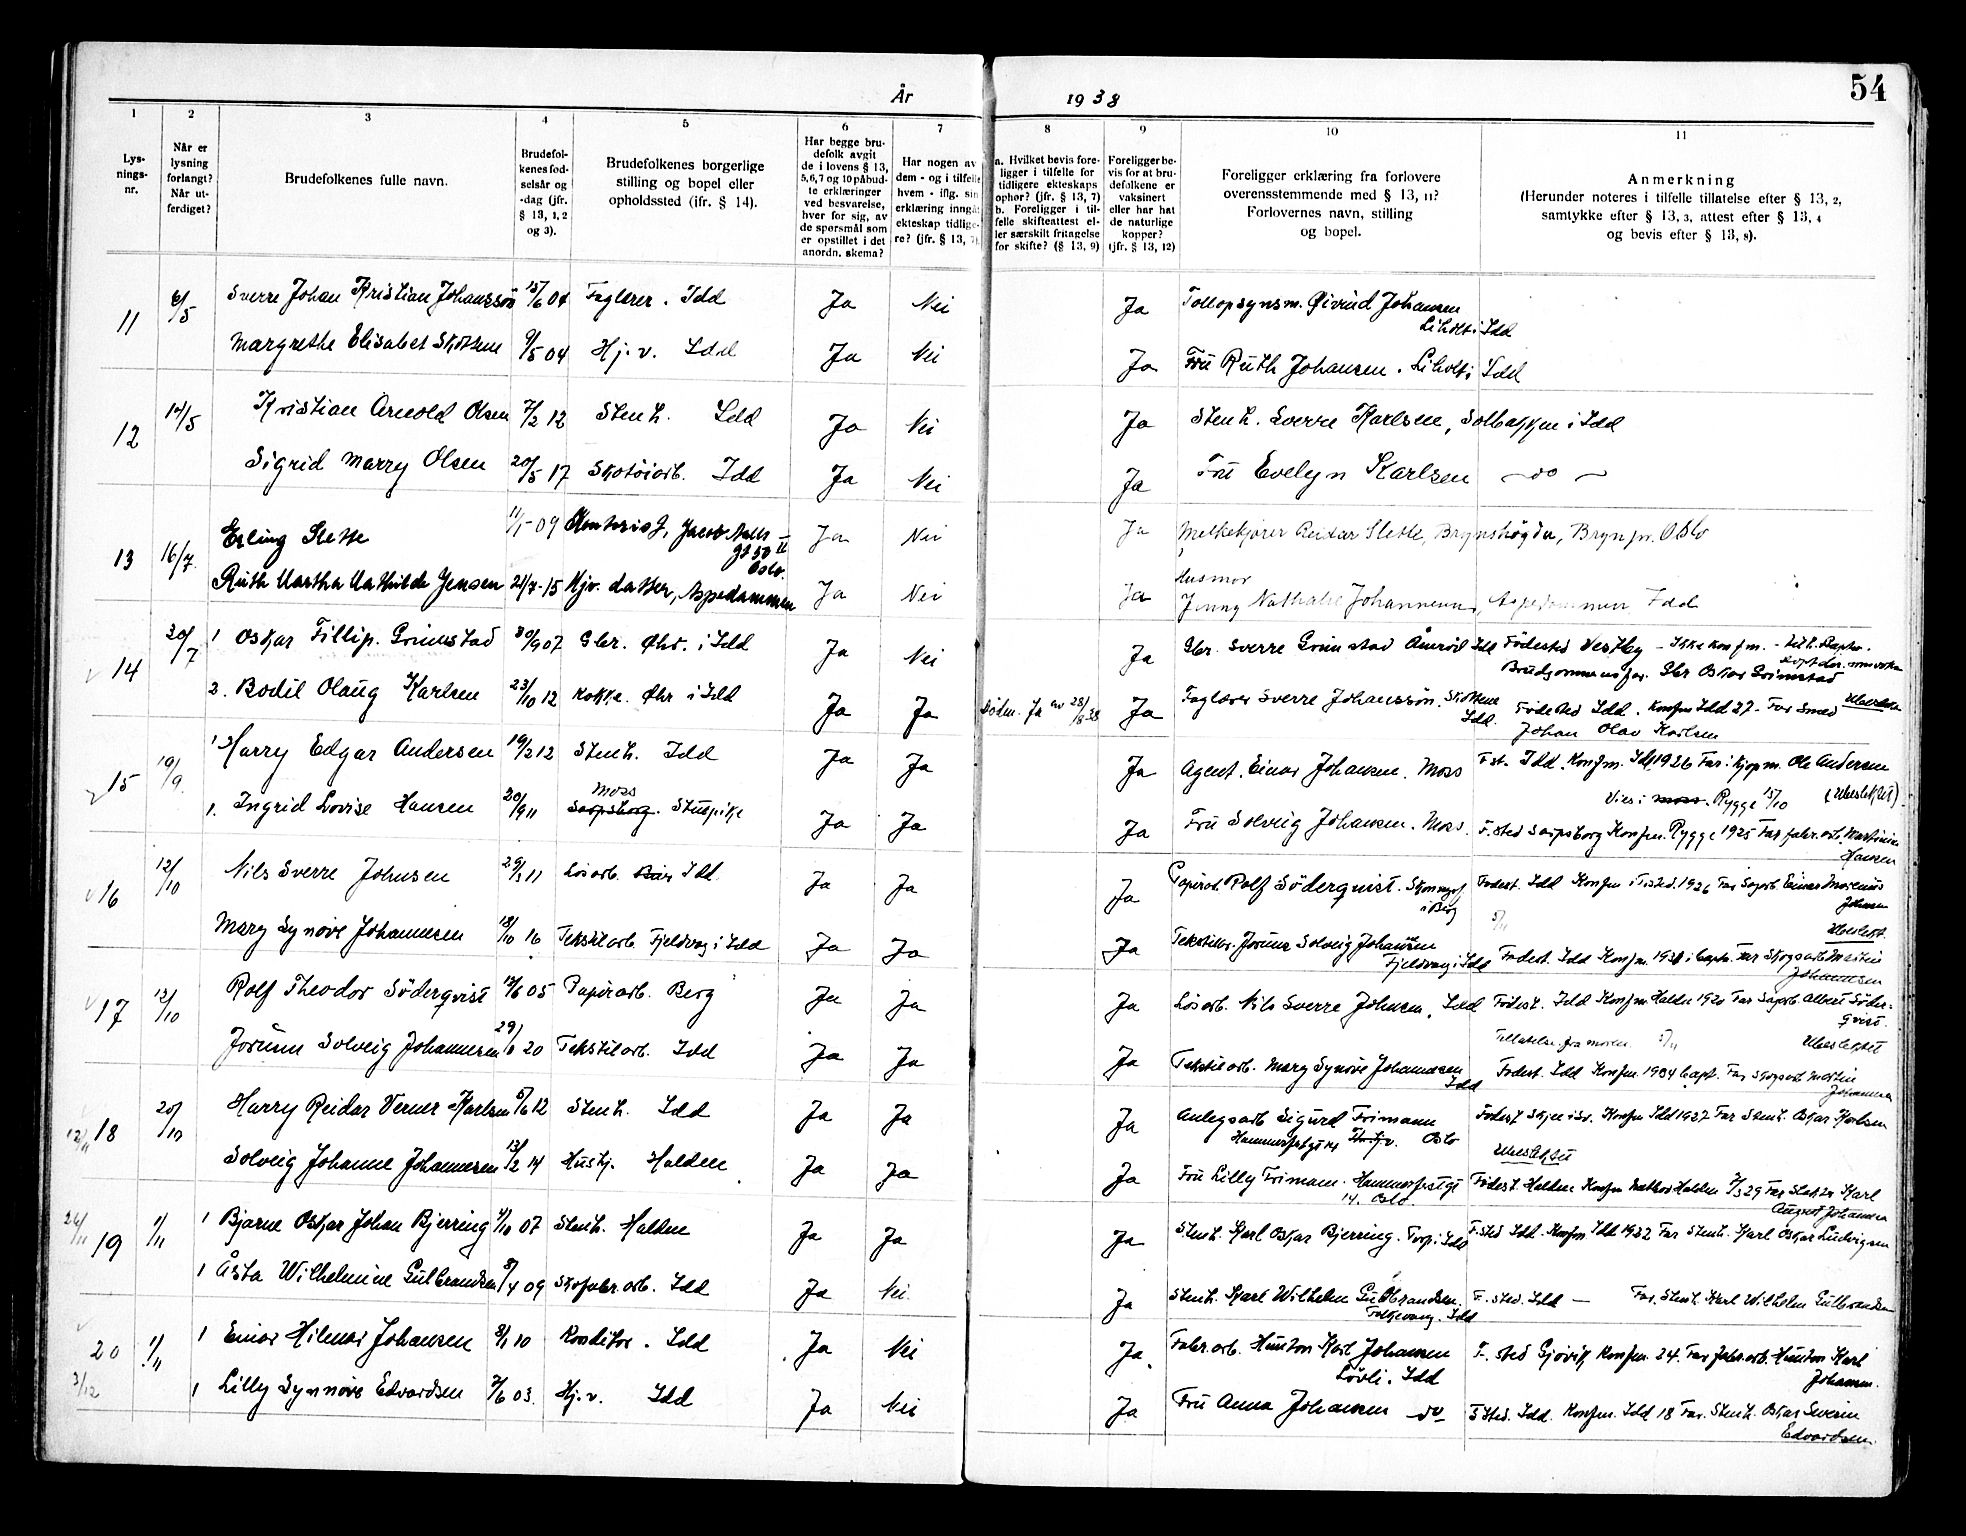 54
År 1938
1 2 3 4 5 6 7 8 9 10 11
Lysningsnr.
Når er lysning forlangt? Når utferdiget?
Brudefolkenes fulle navn.
Brudefolkenes fødselsår og -dag (jfr. § 13, 1, 2 og 3).
Brudefolkenes borgerlige stilling og bopel eller opholdssted (ifr. § 14).
Har begge brudefolk avgit de i lovens § 13, 5,6,7 og 10 påbudte erklæringer ved besvarelse, hver for sig, av de spørsmål som er opstillet i det anordn. skema?
Har nogen av dem - og i tilfelle hvem - iflg. sin erklæring inngått ekteskap tidligere? (jfr. § 13, 7)
a. Hvilket bevis foreligger i tilfelle for tidligere ekteskaps ophør? (jfr. § 13, 7)
b. Foreligger i tilfelle skifteattest eller særskilt fritagelse for skifte? (§ 13, 9)
Foreligger bevis for at brudefolkene er vaksinert eller har hat de naturlige kopper? (jfr. § 13, 12)
Foreligger erklæring fra forlovere overensstemmende med § 13, 11? Forlovernes navn, stilling og bopel.
Anmerkning
(Herunder noteres i tilfelle tillatelse efter § 13, 2, samtykke efter § 13, 3, attest efter § 13, 4 og bevis efter § 13, 8).
11 6/5 Sverre Johan Kristian Johanssön 15/6 04 Faglærer. Idd Ja Nei Ja Tollopsynsm. Øivind Johansen Liholt i Idd
Margrethe Elisabet Skottene 9/5 04 Hj.v. Idd Ja Nei Ja Fru Ruth Johansen. Liholt i Idd
12 14/5 Kristian Arnold Olsen 7/2 12 Stenh. Idd Ja Nei Ja Stenh. Sverre Karlsen, Solbakken i Idd
Sigrid Marry Olsen 20/5 17 Skotöiarb. Idd Ja Nei Ja Fru Evelyn Karlsen — do —
13 16/7 Erling 11/1-09 Kontorist, Jacob Aalls gt 50 II Oslo. Ja Nei Ja Melkekjører Reidar Slette, Brynshøgda, Bryn pr. Oslo
Ruth Martha Mathilde Jensen 21/7-15 Hjv. datter, Aspedammen Ja Nei Ja Husmor Jenny Nathalie Johannesen, Aspedammen Idd
14 20/7 1 Oskar Fillip. Grimstad 30/9 07 Gbr. Øbr. i Idd Ja Nei Ja Gbr. Sverre Grimstad Idd Fødested Vestby - Ikke konfm. - Brudgommens far. Gbr Oskar Grimstad
2. Bodil Olaug Karlsen 23/10 12 Kokke. Øbr i Idd Ja Ja Döden. Ja av 28/8 38 Ja Faglærer Sverre Johanssön. Skottene Idd. Födested Idd. Konfm Idd 27 - Far Smed Johan Olav Karlsen Ubeslektet
15 19/9. 1 Harry Edgar Andersen 19/2 12 Stenh. Idd Ja Ja Ja Agent. Einar Johansen. Moss F.st. Idd. Konfm. Idd 1926 Far: Kjøpm. Ole Andersen
Vies i Moss. Rygge 15/10 (Ubeslektet)
1. Ingrid Lovise Hansen 20/9 11 Moss Sarpsborg. Stuepike Ja Ja Ja Fru Solveig Johansen. Moss. F.sted Sarpsborg Konfm. Rygge 1925 Far fabr.arb. Martinius Hansen
16 12/10 Nils Sverre Johnsen 29/3 11 Løsarb. Idd. Ja Ja Ja Papirarb. Rolf Söderqvist. i Berg Fødest. Idd Konfm i Tisted. 1926 Far Sagarb Einar Marenius Johnsen
5/11 Ubeslektet.
Mary Synöve Johannesen 18/10 16 Tekstilarb. Fjeldvag i Idd Ja Ja Ja Tekstilar. Jorunn Solveig Johannesen Fjeldvag i Idd Fødest. Idd Konfm. 1931 i bapt. Far Skogsarb Martin Johannesen
17 12/10 Rolf Theodor Söderqvist 14/6 05 Papirarb. Berg Ja Ja Ja Løsarb. Nils Sverre Johnsen, Idd Fødest. Idd Konfm Halden 1920 Far Sagarb Albert Söderqvist.
Tillatelse fra moren 5/11 Ubeslektet
Jorunn Solveig Johannesen 29/ 20 Tekstilarb. Idd Ja Ja Ja Tekstilarb. Mary Synöve Johannesen Idd Fødest. Idd Konfm. 1934 bapt. Far Skogsarb Martin Johannesen
12/11 18 20/10 Harry Reidar Verner Karlsen 5/6 12 Stenh. Idd Ja Ja Ja Anlegsarb Sigurd Frimann Hammerfestgt 14 Oslo Fødest Skjee i Sv. Konfm Idd 1927 Far Stenh. Oskar Karlsen
Ubeslektet
Solveig Johanne Johannesen 13/2 14 Hushj. Halden Ja Ja Ja Fru Lilly Frimann. Hammerfestgt 14. Oslo. Fødest. Halden Konfm Halden 29 Far Karl August Johansen
26/11 19 1/11 1 Bjarne Oskar Johan Bjerring 4/10 07 Stenh. Halden Ja Ja Ja Stenh. Karl Oskar Bjerring. Torp i Idd F.sted Idd. Konfm Idd 1922 Far Stenh. Karl Oskar Ludvigsen
1 Åsta Wilhelmine Gulbrandsen 8/4 09 Skofabr.arb. Idd Ja Nei. Ja Stenh. Karl Wilhelm Gulbrandsen. Folkevang. Idd F. sted. Idd — Far. Stenh. Karl Wilhelm Gulbrandsen
3/12 20 1/11 1 Einar Hilmar Johansen 3/1 10 Konditor. Idd Ja Nei Ja. Fabr.arb. Hunton Karl Johansen Lövli. Idd F. sted Gjøvik Konfm. 24. Far fabr.arb. Hunton Karl Johansen.
1 Lilly Synnöve Edvardsen 2/6 03. Hj.v. Idd Ja Nei Ja Fru Anna Johansen do F.sted. Idd. Konfm. Idd 18 Far. Stenh. Oskar Severin Edvardsen